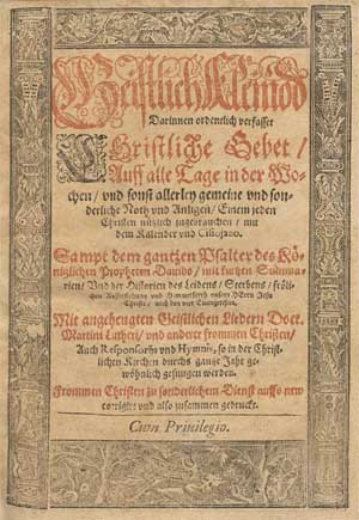 Geistlich Kleinod
Darinnen ordentlich verfasset
Christliche Gebet /
Auff alle Tage in der Wo-
chen / vnd sonst allerley gemeine vnd son-
derliche Noth vnd Anligen / Einem jeden
Christen nützlich zugebrauchen / mit
dem Kalender vnd Cisiojano.
Sampt dem gantzen Psalter des Kö-
niglichen Propheten Dauids / mit kurtzen Summa-
rien / Vnd der Historien des Leidens / Sterbens / fröli-
chen Aufferstehung vnd Himmelfarth vnsers HErrn Jesu
Christi / nach den vier Euangelisten.
Mit angehengten Geistlichen Liedern Doct.
Martini Lutheri / vnd anderer frommen Christen /
Auch Responsoria vnd Hymnis, so in der Christ-
lichen Kirchen durchs gantze Jahr ge-
wöhnlich gesungen werden.
Frommen Christen zu sonderlichem Dienst auffs new
corrigirt vnd also zusammen gedruckt.
Cum Privilegio.